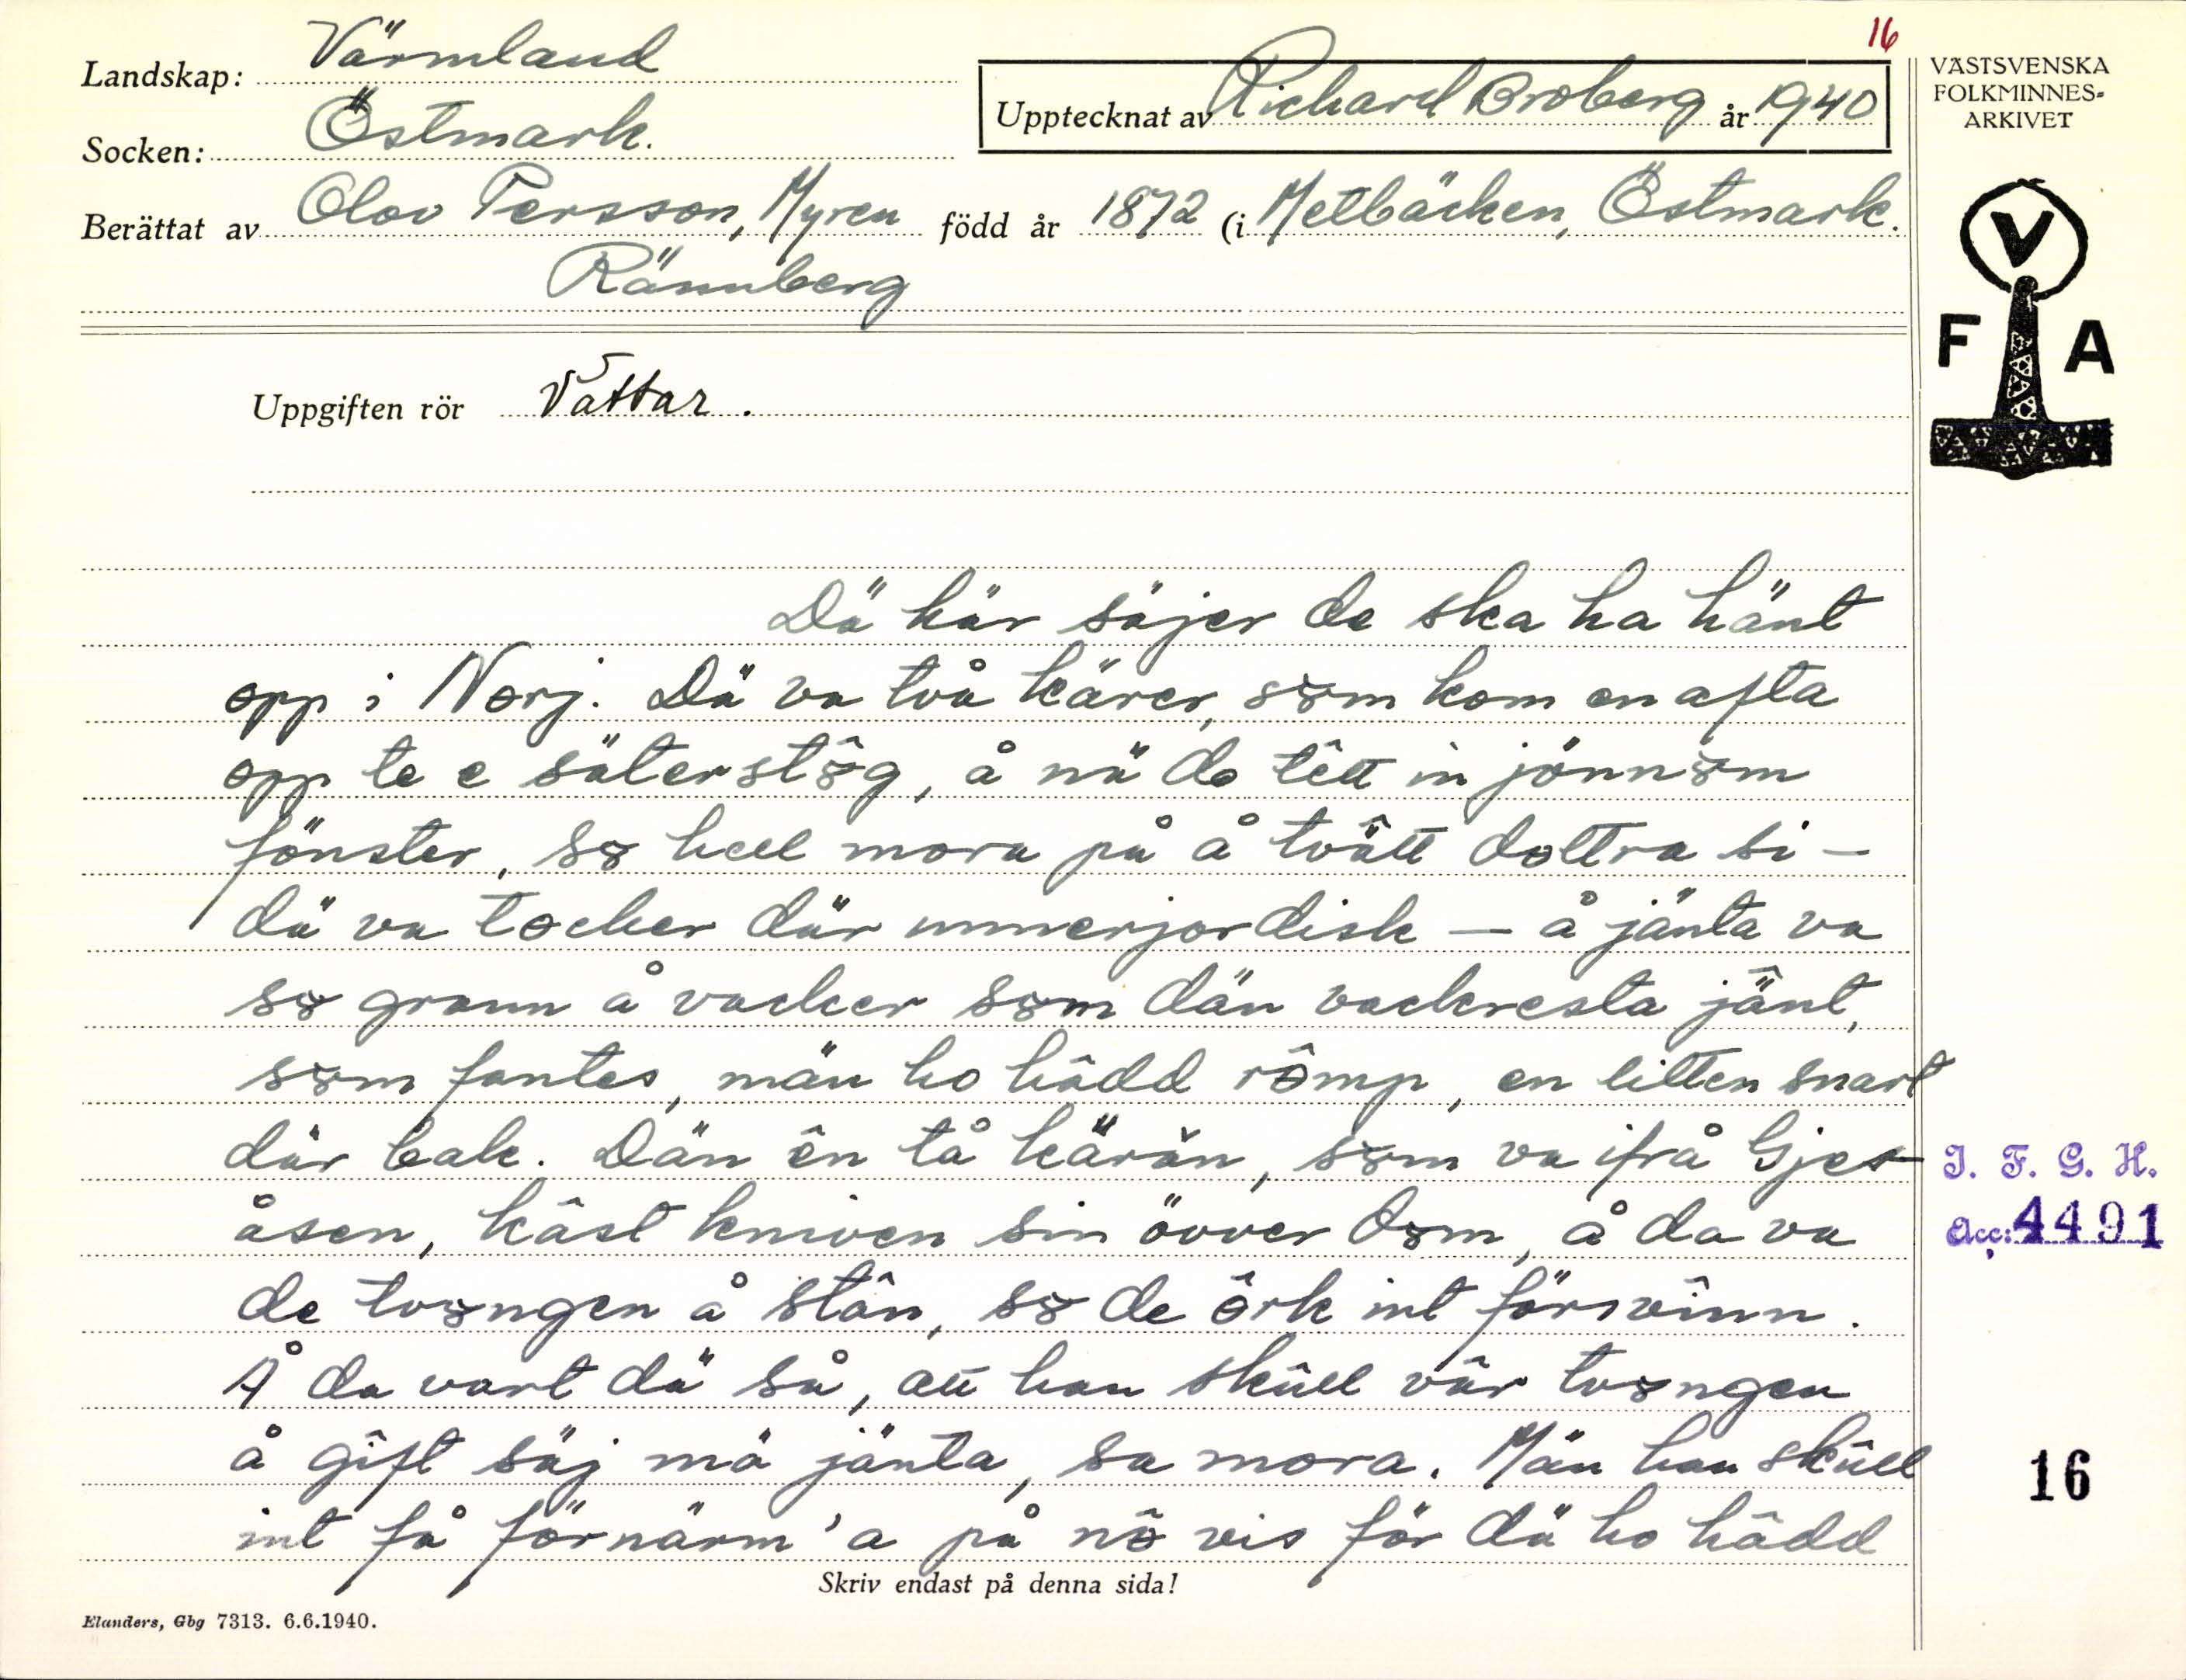 16
Landskap: Värmland
Socken: Östmark.
Upptecknat av Richard Broberg år 1940
Berättat av Olov Persson, Myren född år 1872 (i Metbäcken, Östmark.
Rännberg
VÄSTSVENSKA
FOLKMINNES-
ARKIVET
V
F A
Uppgiften rör Vättar.
Dä här säjer de ska ha hänt
opp i Norj. Dä va två kärer, søm kom en afta
opp te e säterstø̂g, å nä de têtt in jönnøm
fönster, sø hell mora på å tvätt dottra si –
dä va tocker där unnerjordisk – å jänta va
sø grann å vacker søm dän vackresta jänt,
søm fantes, män ho hâdd rômp, en litten snart
där bak. Dän ên tå kärân, søm va ifrå Gjes-
åsen, kâst kniven sin övver døm, å da va
de tvøngen å stân, sø de ôrk int försvinn.
Å da vart dä så, att han skûll vâr tvøngen
å gîft säj mä jänta, sa mora. Män han skûll
int få förnärm 'a på nô vis för dä ho hâdd
Skriv endast på denna sida!
Elanders, Gbg 7313. 6.6.1940.
I. F. G. H.
Acc: 4491
16